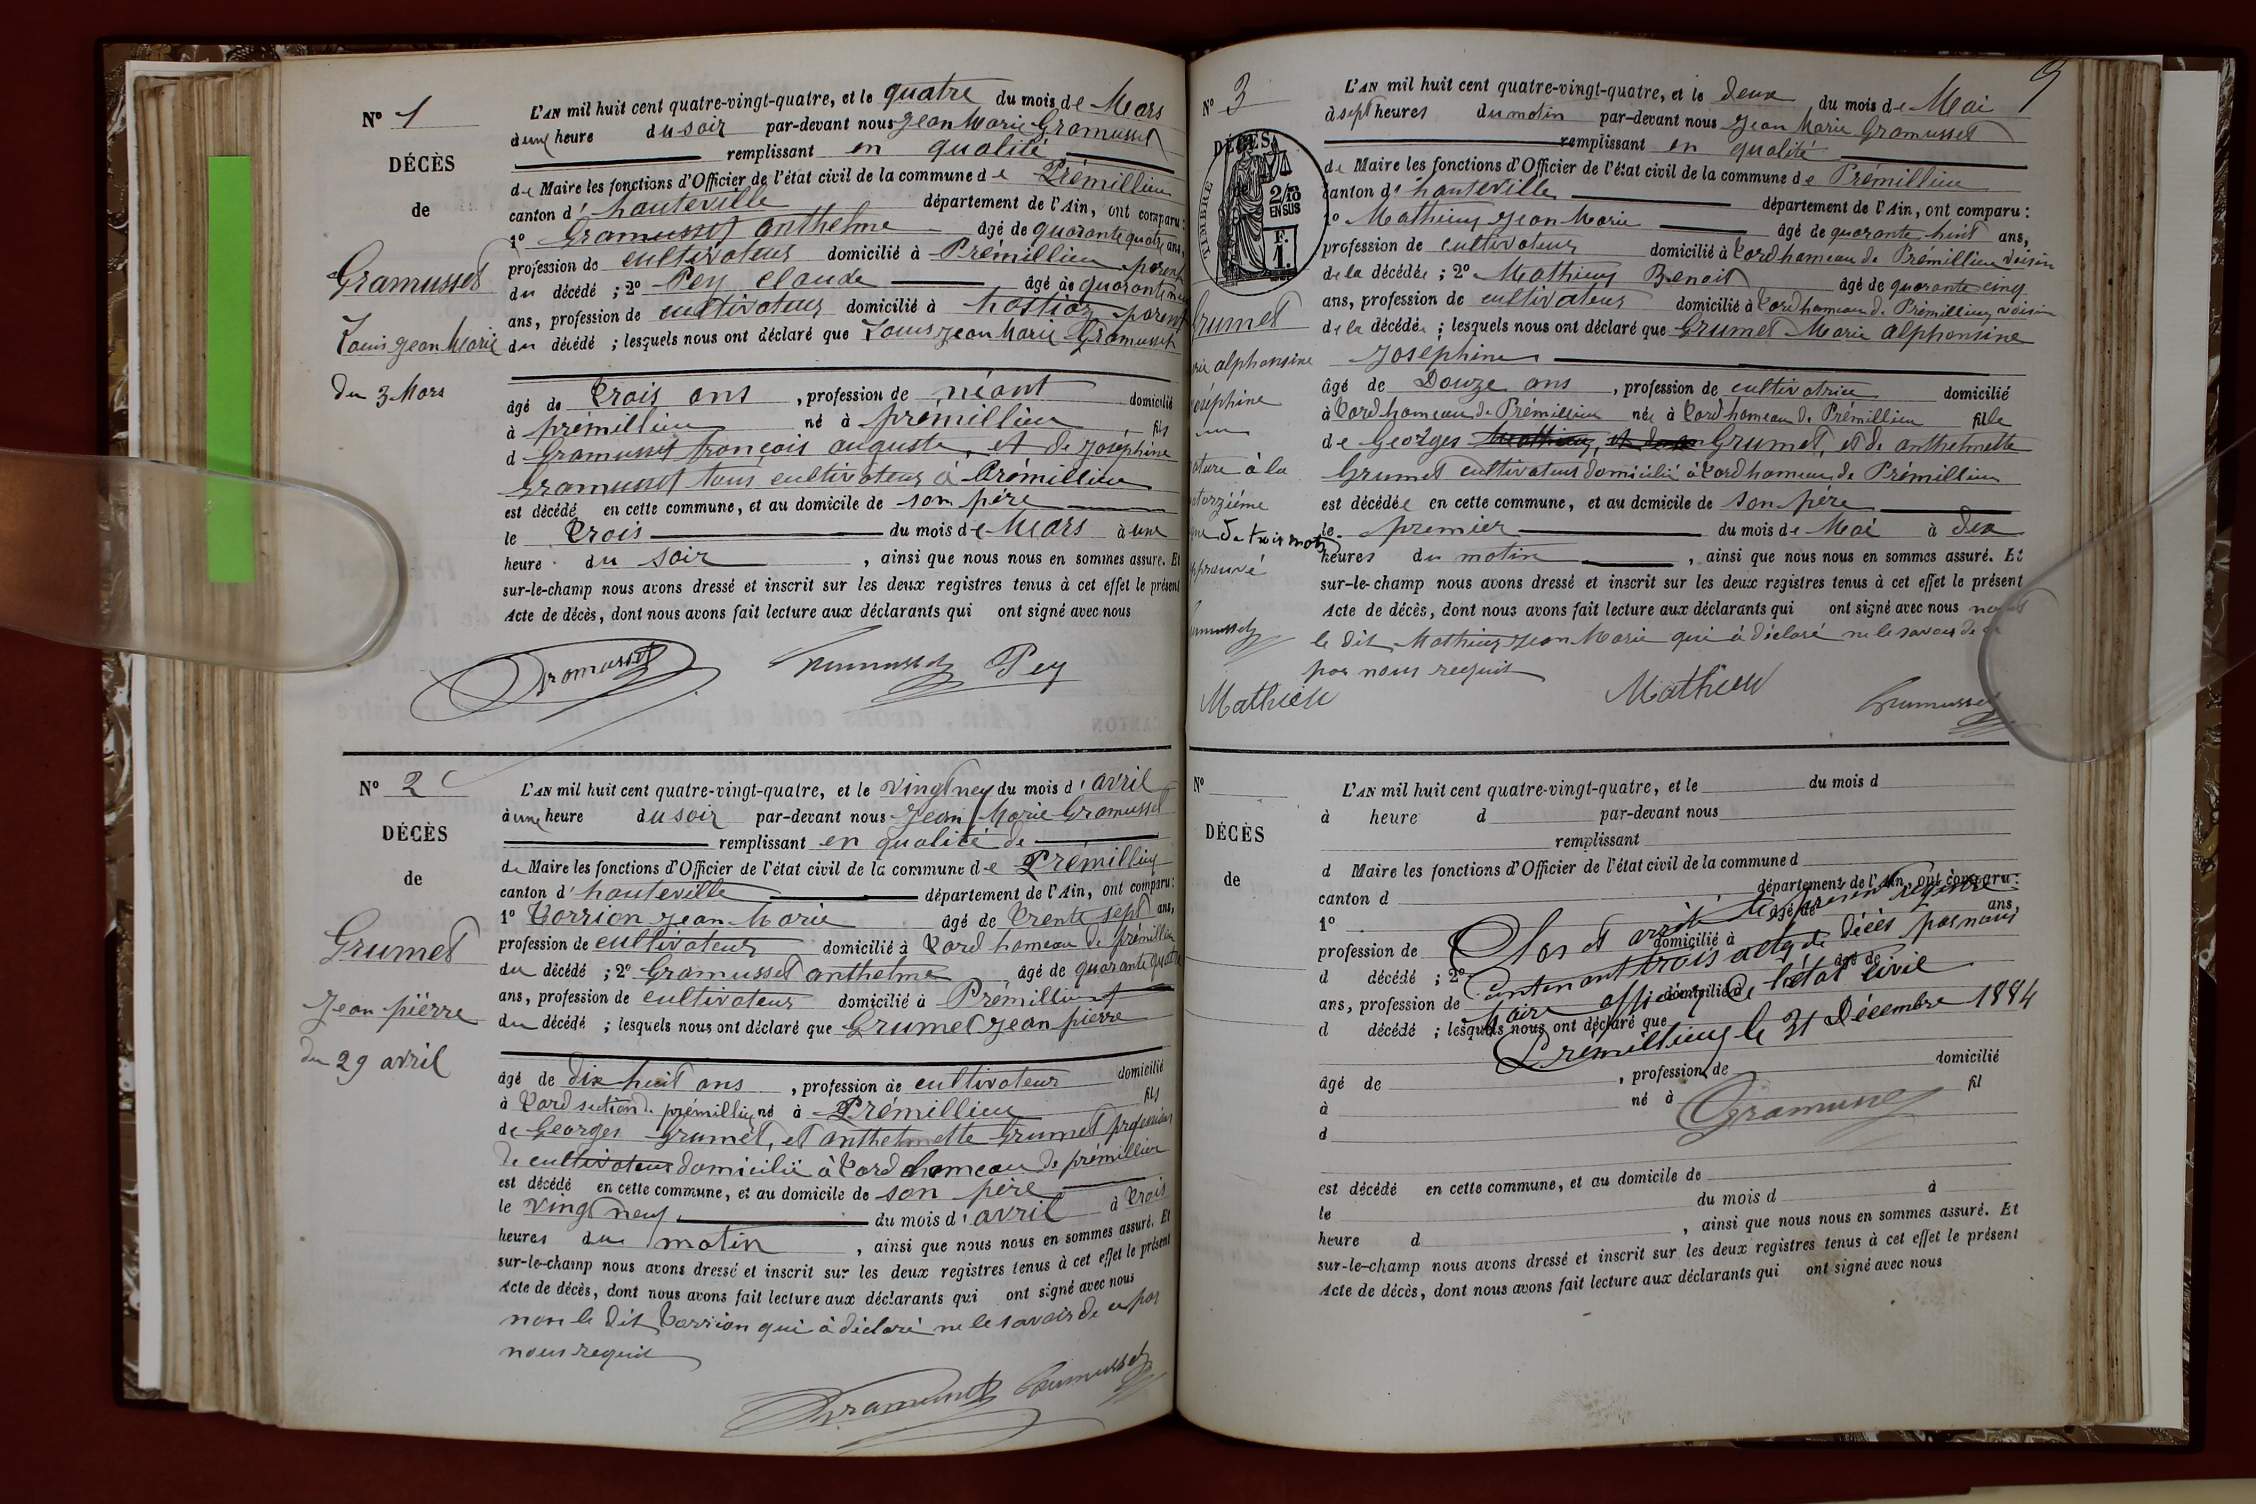 N° 1
DÉCÈS
de
Gramusset
Louis Jean Marie
du 3 Mars
L'AN mil huit cent quatre-vingt-quatre, et le quatre du mois de Mars
à une heure du soir par-devant nous Jean Marie Gramusset
remplissant en qualité
de Maire les fonctions d'Officier de l'état civil de la commune de Prémillieu
canton d'hauteville département de l'Ain, ont comparu :
1° Gramusset anthelme âgé de quarante quatre ans,
profession de cultivateur domicilié à Prémillieu parent
du décédé ; 2° Pey Claude âgé de quarante
ans, profession de cultivateur domicilié à hostiaz parent
du décédé ; lesquels nous ont déclaré que Louis Jean Marie Gramusset
âgé de trois ans , profession de néant domicilié
à prémillieu né à prémillieu fils
d Gramusset françois auguste, et de Joséphine
Gramusset tous cultivateur à Prémillieu
est décédé en cette commune, et au domicile de son père
le trois du mois de Mars à une
heure du soir , ainsi que nous nous en sommes assuré. Et
sur-le-champ nous avons dressé et inscrit sur les deux registres tenus à cet effet le présent
Acte de décès, dont nous avons fait lecture aux déclarants qui ont signé avec nous
Gramusset Gramusset Pey
N° 2
DÉCÈS
de
Grumet
Jean pierre
du 29 avril
L'AN mil huit cent quatre-vingt-quatre, et le vingt neuf du mois d'avril
à une heure du soir par-devant nous Jean Marie Gramusset
remplissant en qualité de
de Maire les fonctions d'Officier de l'état civil de la commune de Prémillieu
canton d'hauteville département de l'Ain, ont comparu :
1° Torrion Jean Marie âgé de trente sept ans,
profession de cultivateur domicilié à tard hameau de prémillieu
du décédé ; 2° Gramusset anthelme âgé de quarante quatre
ans, profession de cultivateur domicilié à Prémillieu
du décédé ; lesquels nous ont déclaré que Grumet Jean pierre
âgé de dix huit ans , profession de cultivateur domicilié
à tard section de prémillieu né à Prémillieu fils
de Georges Grumet, et anthelmette Grumet profession
de cultivateur domicilié à tard hameau de prémillieu
est décédé en cette commune, et au domicile de son père
le vingt neuf du mois d'avril à trois
heures du matin , ainsi que nous nous en sommes assuré. Et
sur-le-champ nous avons dressé et inscrit sur les deux registres tenus à cet effet le présent
Acte de décès, dont nous avons fait lecture aux déclarants qui ont signé avec nous
non le dit Torrion qui à déclaré ne le savoir de ce par
nous requit
Gramusset Gramusset
9
N° 3
DÉCÈS
TIMBRE
2/10
EN SUS
F.
1.
Grumet
alphonsine
Joséphine
à la
de trois mots
Gramusset
Mathieu
L'AN mil huit cent quatre-vingt-quatre, et le deux du mois de Mai
à sept heures du matin par-devant nous Jean Marie Gramusset
remplissant en qualité
de Maire les fonctions d'Officier de l'état civil de la commune de Prémillieu
canton d'hauteville département de l'Ain, ont comparu :
1° Mathieu Jean Marie âgé de quarante huit ans,
profession de cultivateur domicilié à tard hameau de Prémillieu voisin
de la décédée ; 2° Mathieu Benoit âgé de quarante cinq
ans, profession de cultivateur domicilié à tard hameau de Prémillieu voisin
de la décédée ; lesquels nous ont déclaré que Grumet Marie alphonsine
Joséphine
âgé de Douze ans , profession de cultivatrice domicilié
à tard hameau de Prémillieu née à tard hameau de Prémillieu fille
de Georges Grumet, et de anthelmette
Grumet cultivateur domicilié à tard hameau de Prémillieu
est décédée en cette commune, et au domicile de son père
le premier du mois de Mai à dix
heures du matin , ainsi que nous nous en sommes assuré. Et
sur-le-champ nous avons dressé et inscrit sur les deux registres tenus à cet effet le présent
Acte de décès, dont nous avons fait lecture aux déclarants qui ont signé avec nous
le dit Mathieu Jean Marie qui à déclaré ne le savoir de ce
par nous requit
Mathieu Gramusset
N°
DÉCÈS
de
L'AN mil huit cent quatre-vingt-quatre, et le du mois d
à heure d par-devant nous
remplissant
d Maire les fonctions d'Officier de l'état civil de la commune d
canton d département de l'Ain, ont comparu :
1° âgé de ans,
profession de domicilié à
d décédé ; 2° âgé de
ans, profession de domicilié à
d décédé ; lesquels nous ont déclaré que
Clos et arrêté le présent registre
contenant trois acte de décès par nous
Maire officier de l'état civil
Prémillieu le 31 Décembre 1884
Gramusset
âgé de , profession de domicilié
à né à fil
d
est décédé en cette commune, et au domicile de
le du mois d à
heure d , ainsi que nous nous en sommes assuré. Et
sur-le-champ nous avons dressé et inscrit sur les deux registres tenus à cet effet le présent
Acte de décès, dont nous avons fait lecture aux déclarants qui ont signé avec nous